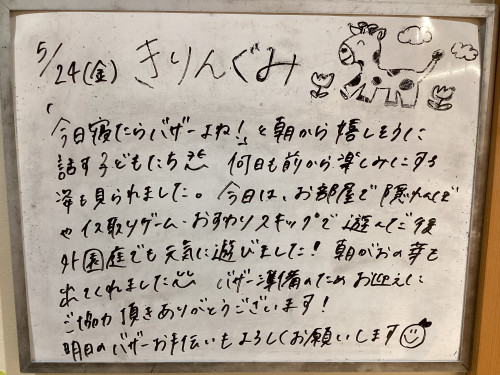 5/24(金) きりんぐみ
「今日寝たらバザーよね!」と朝から嬉しそうに
話す子どもたち 何日も前から楽しみにする
姿も見られました。今日は、お部屋で隠れんぼ
やイス取りゲーム・おすわりスキップで遊んだ後
外園庭でも元気に遊びました!朝がおの芽も
出てくれました バザー準備のためお迎えに
ご協力頂きありがとうございます!
明日のバザーお手伝いもよろしくお願いします